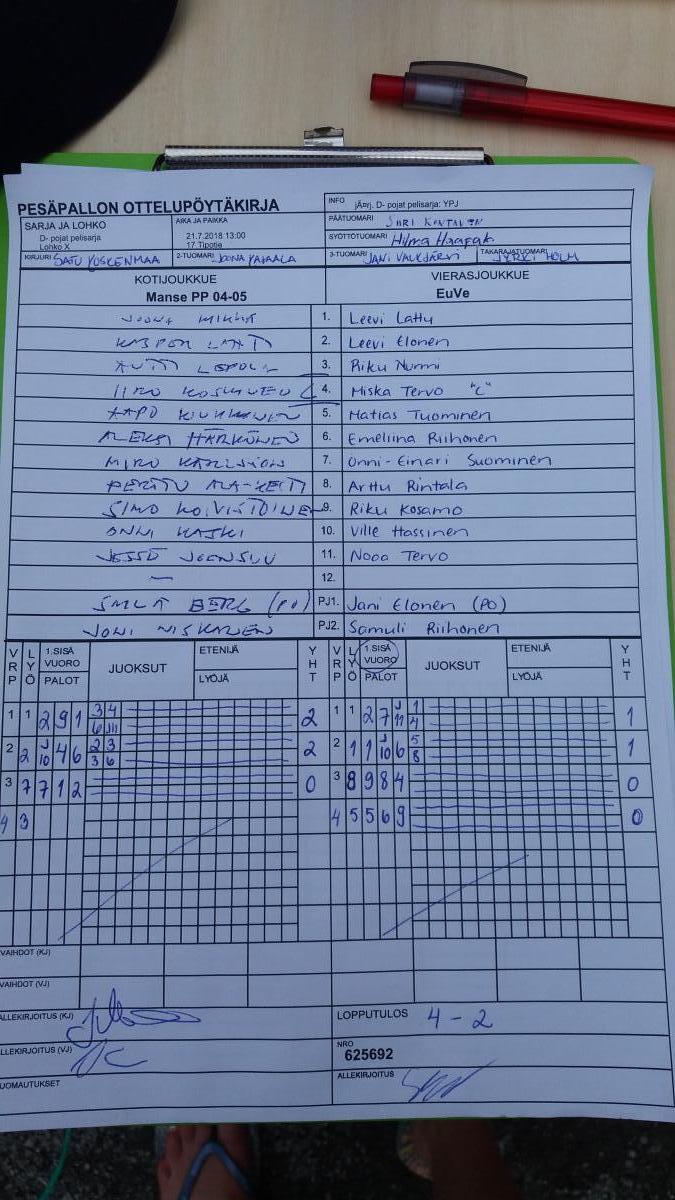 PESÄPALLON OTTELUPÖYTÄKIRJA
INFO jÃ¤rj. D- pojat pelisarja: YPJ
SARJA JA LOHKO
D- pojat pelisarja
Lohko X
AIKA JA PAIKKA
21.7.2018 13:00
17 Tipotie
PÄÄTUOMARI
SYÖTTÖTUOMARI Hilma
KIRJURI SATU KOSKENMAA
2-TUOMARI JOONA
3-TUOMARI JANI VALKJÄRVI
TAKARAJATUOMARI JYRKI HOLM
KOTIJOUKKUE
Manse PP 04-05
VIERASJOUKKUE
EuVe
JOONA MIKKÄ 1. Leevi Lattu
KASPER LAHTI 2. Leevi Elonen
ANTTI LEPOLA 3. Riku Nurmi
IIRO KOSKINEN C 4. Miska Tervo "C"
AAPO 5. Matias Tuominen
ALEKSI HÄRKÖNEN 6. Emeliina Riihonen
MIRO 7. Onni-Einari Suominen
PERTTU ALA-KEITI 8. Arttu Rintala
SIMO KOIVISTOINEN 9. Riku Kosamo
ONNI KASKI 10. Ville Hassinen
JESSE JOENSUU 11. Nooa Tervo
— 12.
BERG (PO) PJ1. Jani Elonen (PO)
JONI NISKANEN PJ2. Samuli Riihonen
VRP LYÖ 1.SISÄ VUORO PALOT JUOKSUT ETENIJÄ LYÖJÄ YHT VRP LYÖ 1.SISÄ VUORO PALOT JUOKSUT ETENIJÄ LYÖJÄ YHT
1 1 2 9 1 3 4 2 1 1 2 7 J 11 1 4 1
6 J11
2 2 J 10 4 6 2 3 2 2 1 1 J 10 6 5 8 1
3 6
3 7 7 1 2 0 3 8 9 8 4 0
4 3 4 5 5 6 9 0
VAIHDOT (KJ)
VAIHDOT (VJ)
ALLEKIRJOITUS (KJ)
LOPPUTULOS 4 - 2
ALLEKIRJOITUS (VJ)
NRO
625692
HUOMAUTUKSET
ALLEKIRJOITUS